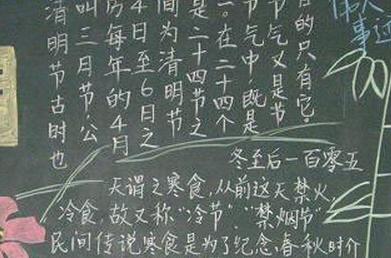 清明节古时也
叫三月节,公
历每年的4月
4日至6日之
间为清明节
是二十四节之
一。在二十四个
节气中既是
节气又是节
日的只有它
冬至后一百零五
天谓之寒食,从前这天禁火,
冷食,故又称“冷节”“禁烟节”
民间传说寒食是为了纪念春秋时介